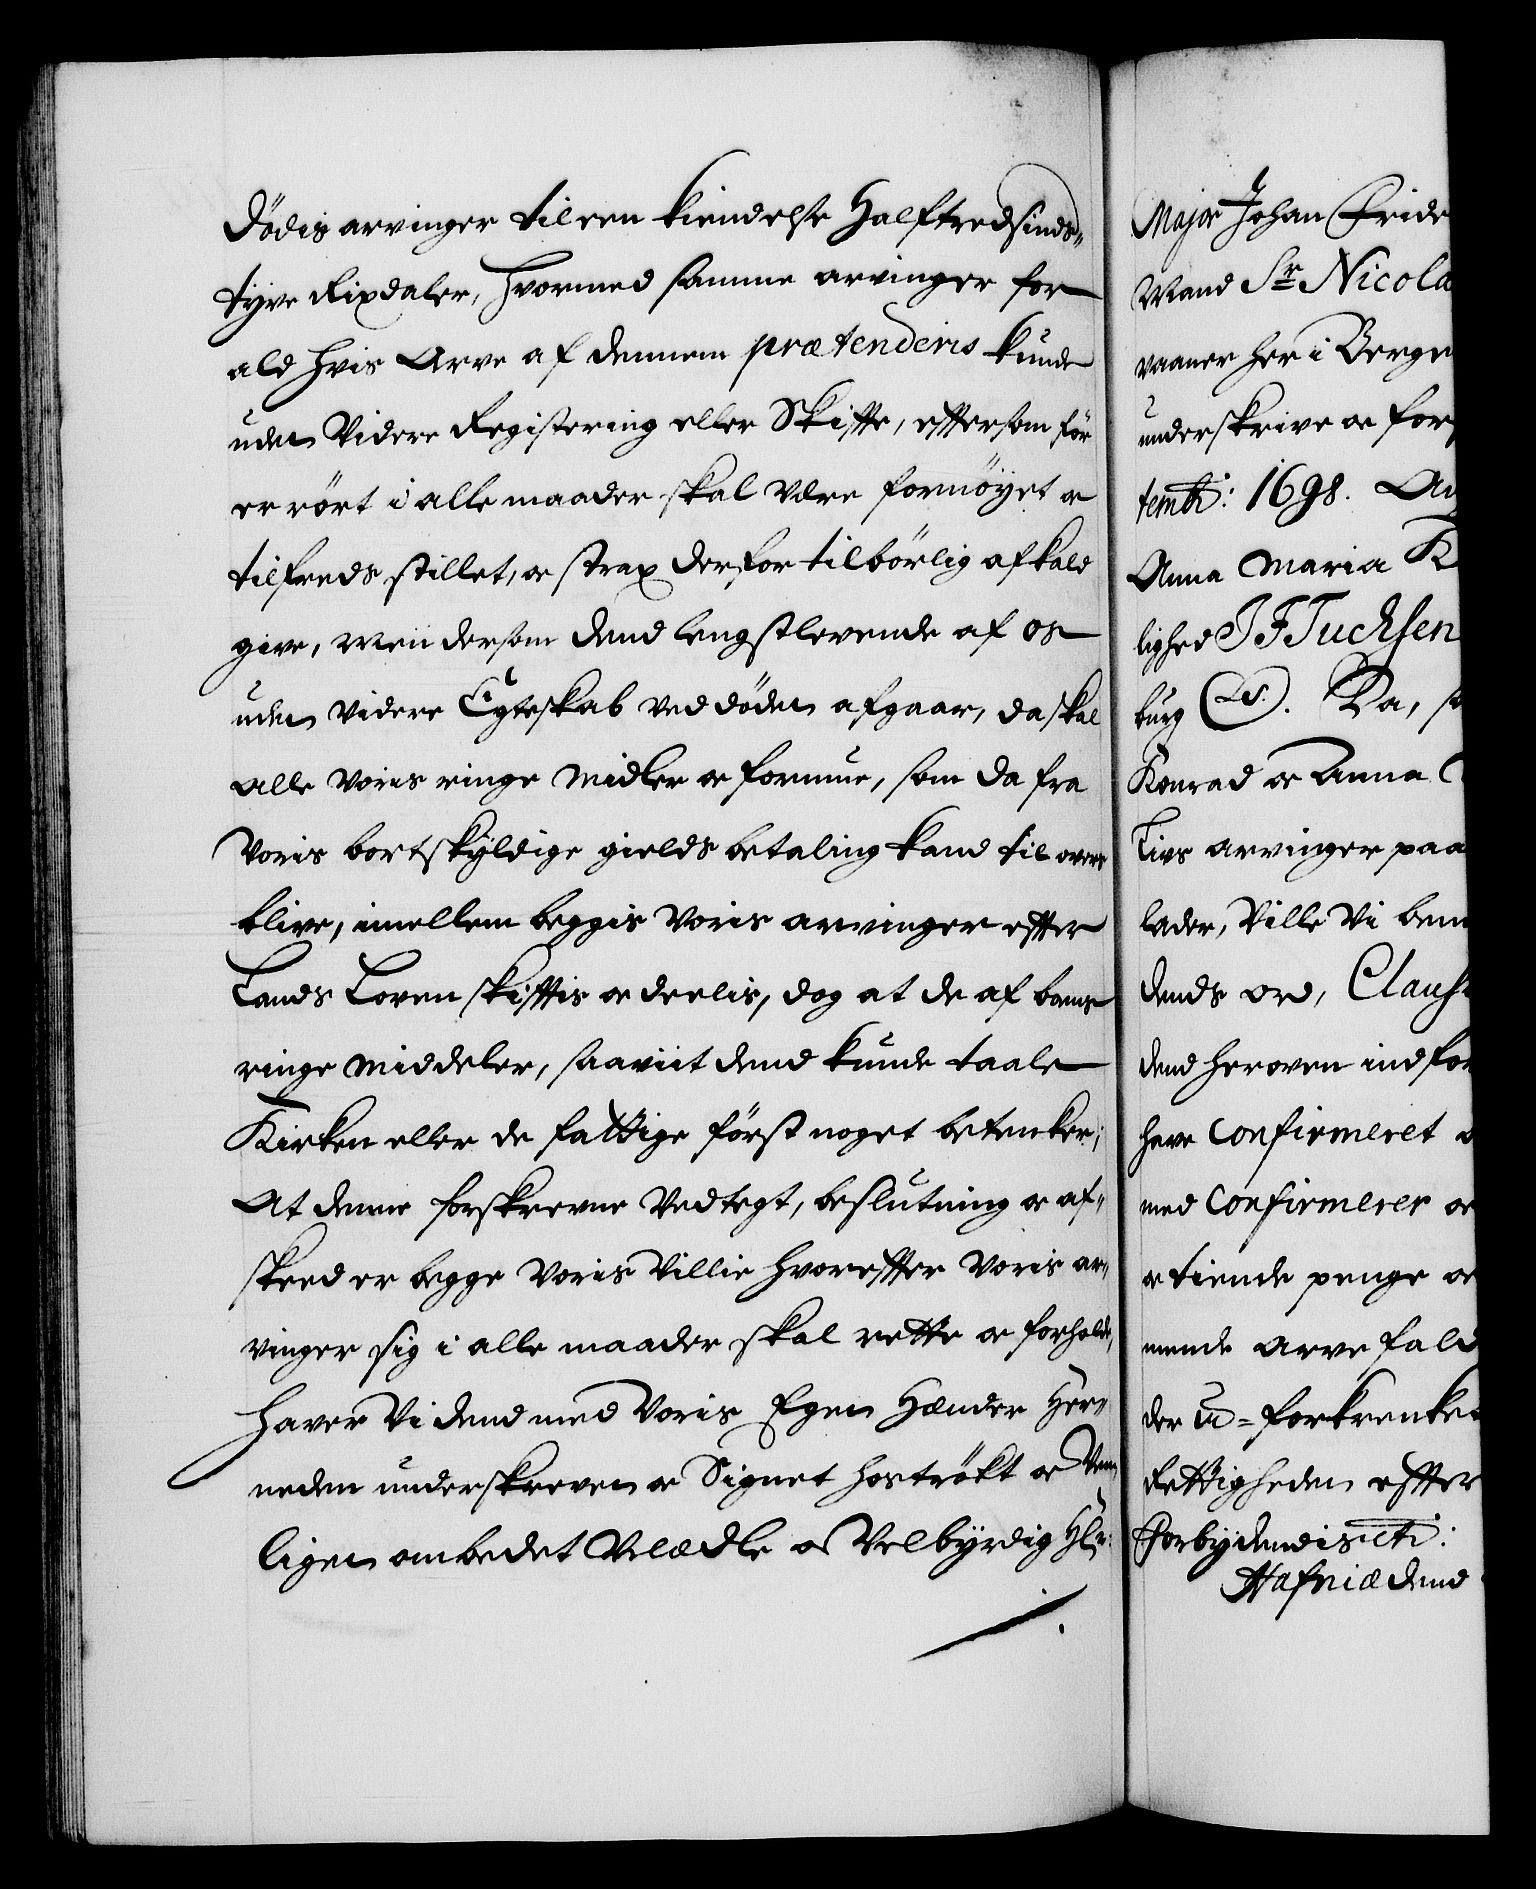 dödis arvinger til een kiendelse Halftredsinds„
tyve Rixdaler, hvormed samme arvinger for
ald hvis Arve af dennem prætenderis kunde
uden Videre Registering eller Skifte, eftersom för
er rört i alle maader skal være fornöyet oc
tilfreds stillet, oc strax derfor tilbörlig afkald
give, Men dersom dend lengstlevende af os
uden videre Egteskab ved döden afgaar, da skal
alle voris ringe midler oc formue, som da fra
Voris bortskyldige gields betaling kand til overs
blive, imellem beggis Voris arvinger effter
Lands Loven skifftis oc deelis, dog at de af bems
ringe middeler, saaviit dend kunde taale
Kirken eller de fattige först noget betenker;
At denne forskrevne Vedtegt, beslutning oc af„
skeed er begge Voris Villie hvoreffter Voris ar„
vinger sig i alle maader skal rette oc forholde,
haver Vi dend med Voris Egen Hænder Her„
neden underskreven oc Signet hoströkt oc Ven
ligen ombedet Velædle oc Velbyrdig Hr:
Major Johan Fride
Mand Sr Nicola
vaaner her i Berge
underskrive oc for
temb: 1698. An
Anna Maria K
lighed J F Tuchsen
burg LS. Da, s
Konrad oc Anna
Livs arvinger paa
lader, Ville Vi bem
dends ord, Claus
dend heroven indfor
have Confirmeret o
med Confirmerer oc
oc tiende penge oc
mende arve fald
der u=forkrenke
Rettigheden effter
Forbydendis etc:
Hafniæ dend